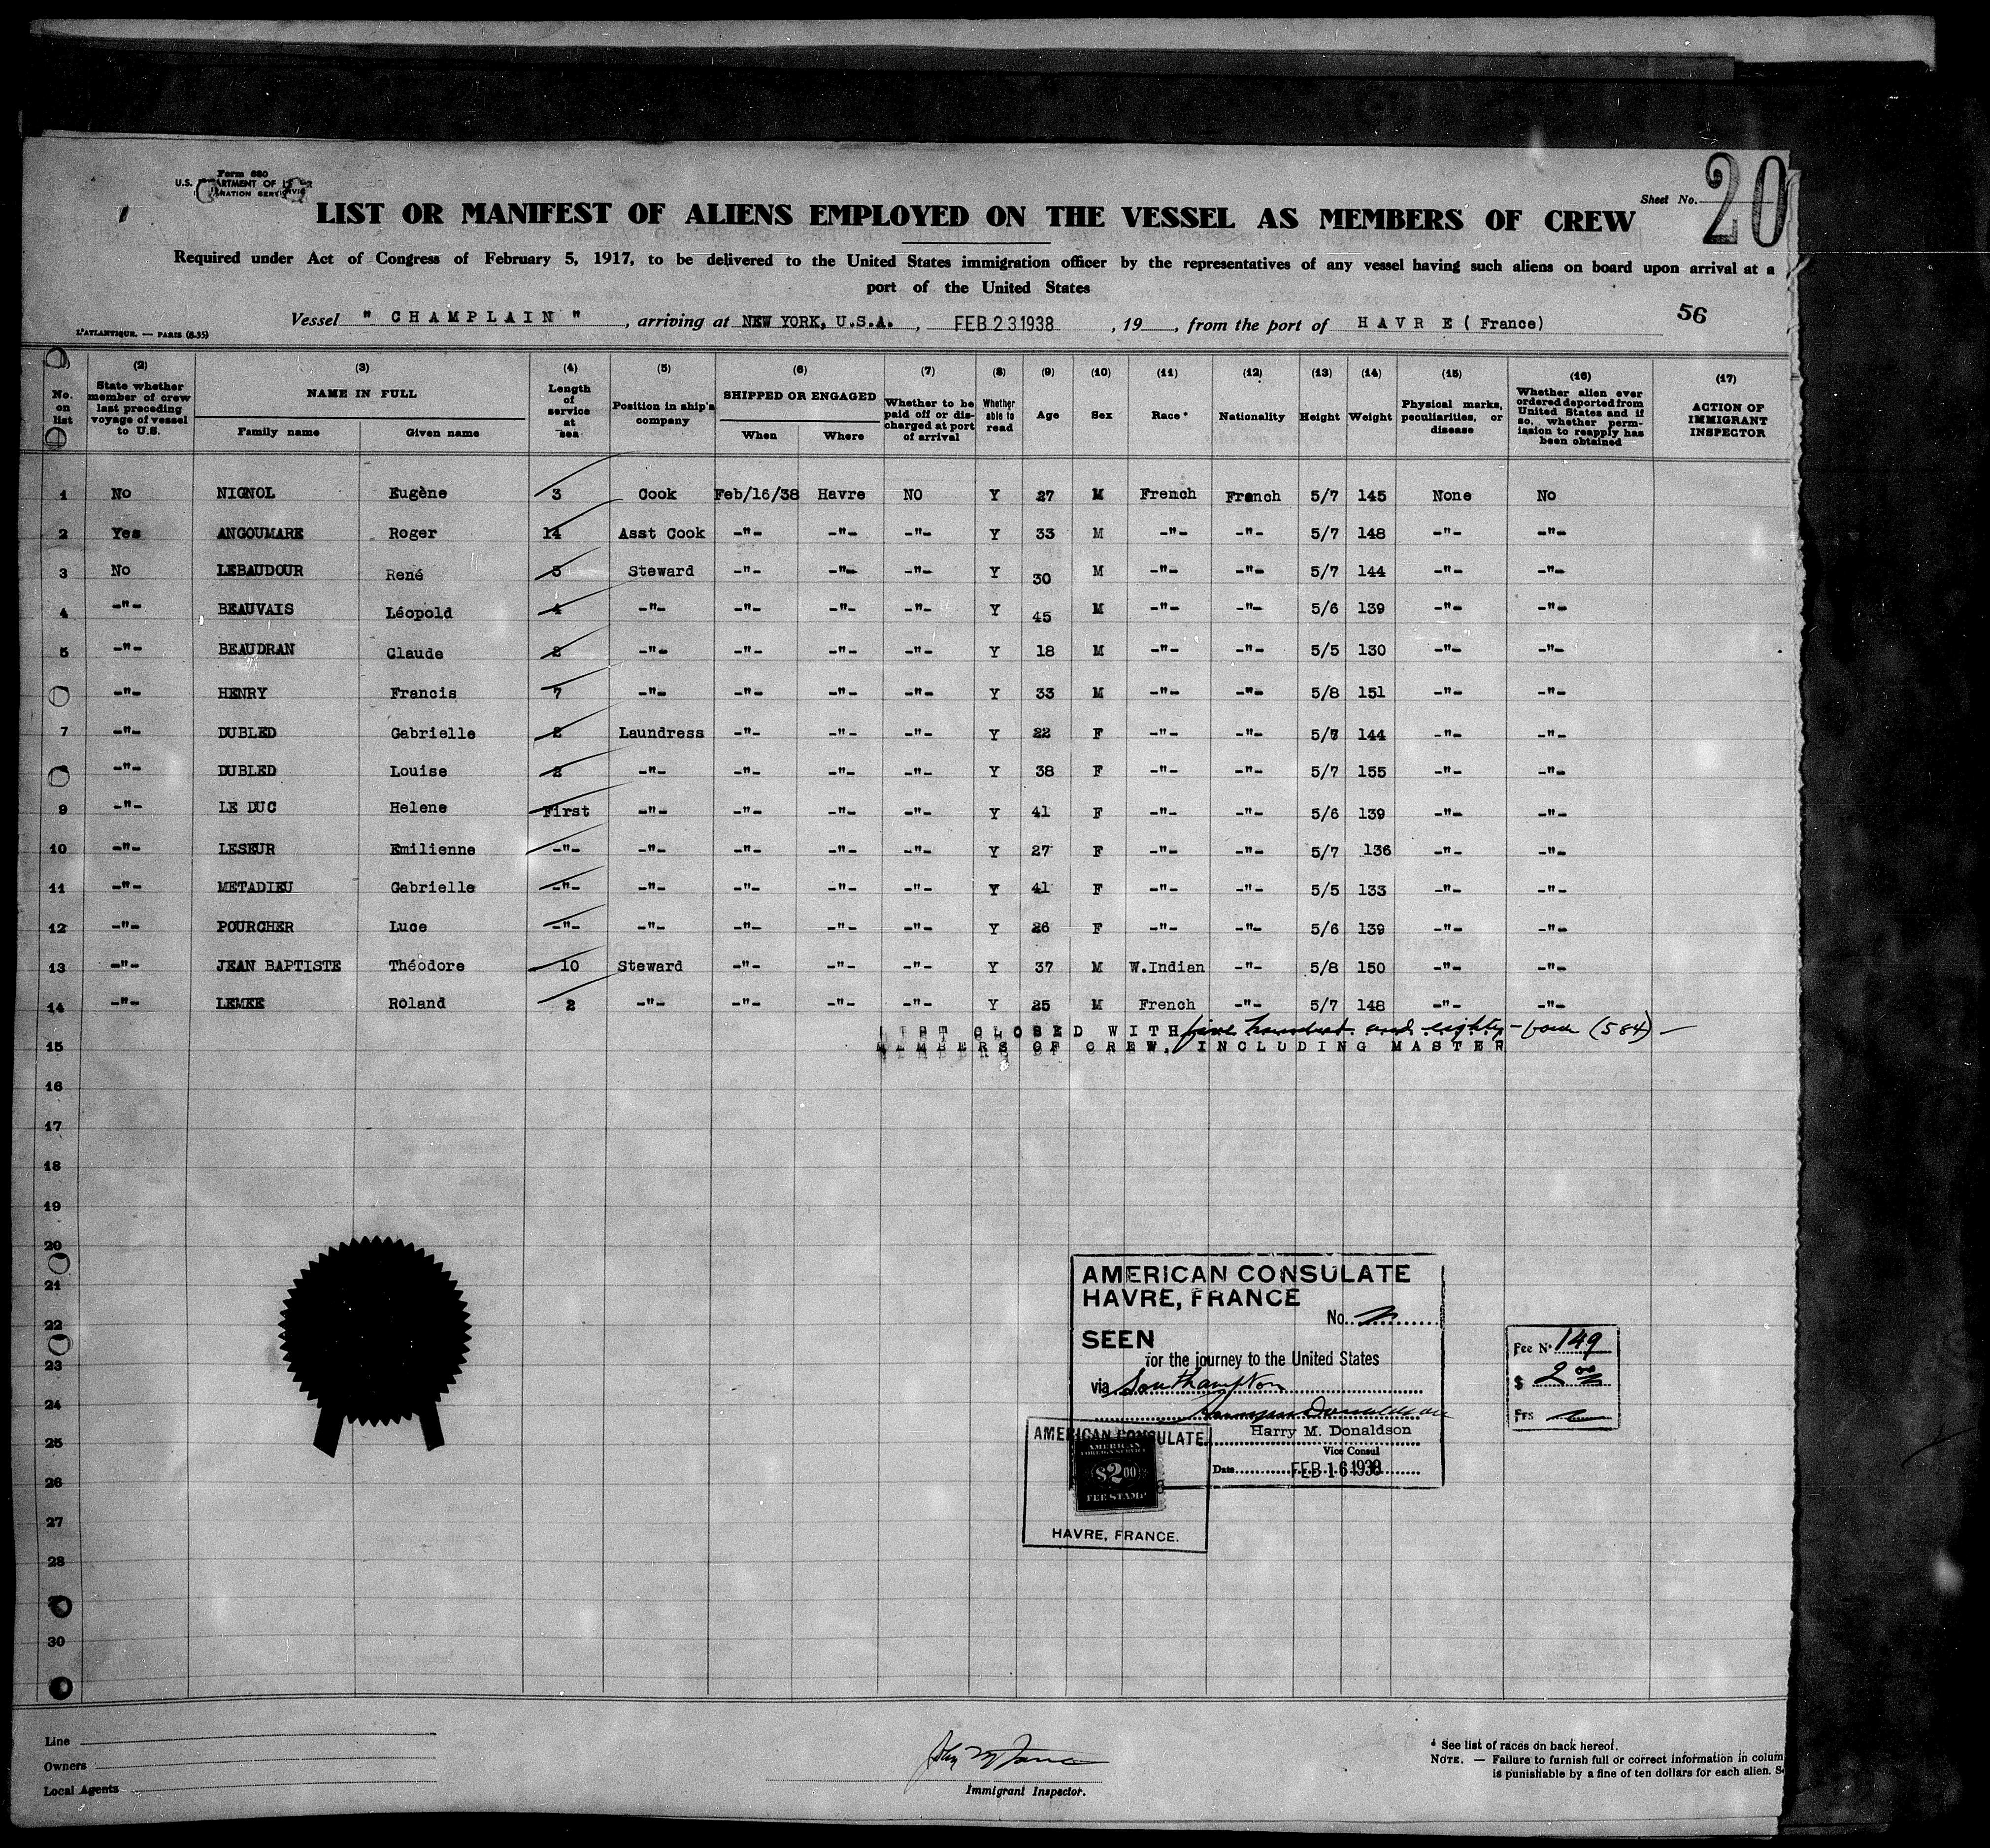 Form 680
U.S. DEPARTMENT OF
Sheet No. 20
LIST OR MANIFEST OF ALIENS EMPLOYED ON THE VESSEL AS MEMBERS OF CREW
Required under Act of Congress of February 5, 1917, to be delivered to the United States immigration officer by the representatives of any vessel having such aliens on board upon arrival at a
port of the United States
Vessel " CHAMPLAIN " , arriving at NEW YORK, U.S.A. , FEB 23 1938 , 19 , from the port of HAVRE (France) 56
L'ATLANTIQUE. — PARIS (8-35)
(2) (3) (4) (5) (6) (7) (8) (9) (10) (11) (12) (13) (14) (15) (16) (17)
No. on list
State whether member of crew last preceding voyage of vessel to U.S.
NAME IN FULL
Family name Given name
Length of service at sea
Position in ship's company
SHIPPED OR ENGAGED
When Where
Whether to be paid off or discharged at port of arrival
Whether able to read
Age Sex Race* Nationality Height Weight
Physical marks, peculiarities, or disease
Whether alien ever ordered deported from United States and if so, whether permission to reapply has been obtained
ACTION OF IMMIGRANT INSPECTOR
1 No NIGNOL Eugène 3 Cook Feb/16/38 Havre NO Y 27 M French French 5/7 145 None No
2 Yes ANGOUMARE Roger 14 Asst Cook -"- -"- -"- Y 33 M -"- -"- 5/7 148 -"- -"-
3 No LEBAUDOUR René 5 Steward -"- -"- -"- Y 30 M -"- -"- 5/7 144 -"- -"-
4 -"- BEAUVAIS Léopold 4 -"- -"- -"- -"- Y 45 M -"- -"- 5/6 139 -"- -"-
5 -"- BEAUDRAN Claude 2 -"- -"- -"- -"- Y 18 M -"- -"- 5/5 130 -"- -"-
-"- HENRY Francis 7 -"- -"- -"- -"- Y 33 M -"- -"- 5/8 151 -"- -"-
7 -"- DUBLED Gabrielle 2 Laundress -"- -"- -"- Y 22 F -"- -"- 5/7 144 -"- -"-
-"- DUBLED Louise 2 -"- -"- -"- -"- Y 38 F -"- -"- 5/7 155 -"- -"-
9 -"- LE DUC Helene First -"- -"- -"- -"- Y 41 F -"- -"- 5/6 139 -"- -"-
10 -"- LESEUR Emilienne -"- -"- -"- -"- -"- Y 27 F -"- -"- 5/7 136 -"- -"-
11 -"- METADIEU Gabrielle -"- -"- -"- -"- -"- Y 41 F -"- -"- 5/5 133 -"- -"-
12 -"- POURCHER Luce -"- -"- -"- -"- -"- Y 26 F -"- -"- 5/6 139 -"- -"-
13 -"- JEAN BAPTISTE Théodore 10 Steward -"- -"- -"- Y 37 M W.Indian -"- 5/8 150 -"- -"-
14 -"- LEMEE Roland 2 -"- -"- -"- -"- Y 25 M French -"- 5/7 148 -"- -"-
LIST CLOSED WITH five hundred and eighty-four (584) —
15 MEMBERS OF CREW, INCLUDING MASTER
16
17
18
19
20
21
22
23
24
25
26
27
28
30
AMERICAN CONSULATE
HAVRE, FRANCE
No.
SEEN
for the journey to the United States
via Southampton
Harry M. Donaldson
Vice Consul
Date FEB 16 1938
Fee No 149
$ 2 00
Frs
AMERICAN CONSULATE
AMERICAN
FOREIGN SERVICE
$2.00
FEE STAMP
HAVRE, FRANCE.
Line
Owners
Local Agents
Immigrant Inspector.
* See list of races on back hereof.
NOTE. — Failure to furnish full or correct information in colum
is punishable by a fine of ten dollars for each alien. S